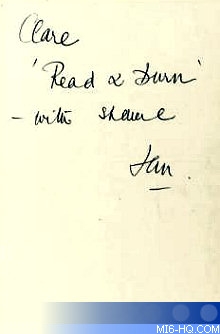 Clare
'Read & Burn'
- with shame
Ian.
MI6-HQ.COM